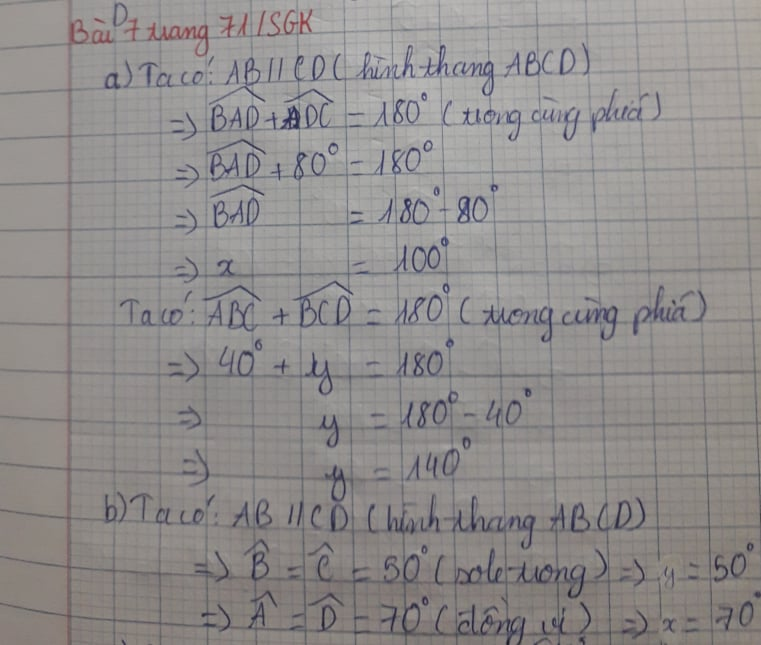 Bài 7 trang 71/SGK
a) Ta có: AB // CD (hình thang ABCD)
=> BAD + ADC = 180° (trong cùng phía)
=> BAD + 80° = 180°
=> BAD = 180° - 80°
=> x = 100°
Ta có: ABC + BCD = 180° (trong cùng phía)
=> 40° + y = 180°
=> y = 180° - 40°
=> y = 140°
b) Ta có: AB // CD (hình thang ABCD)
=> B̂ = Ĉ = 50° (sole trong) => y = 50°
=> Â = D̂ = 70° (đồng vị) => x = 70°